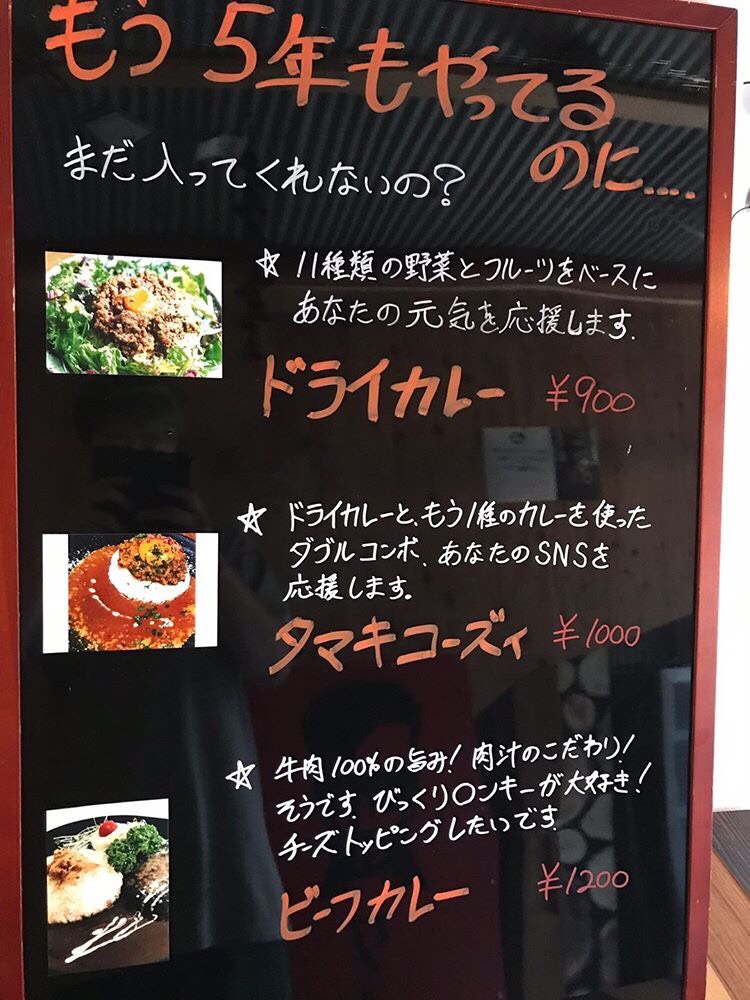 もう5年もやってる
のに....
まだ入ってくれないの?
☆ 11種類の野菜とフルーツをベースに
あなたの元気を応援します.
ドライカレー ¥900
☆ ドライカレーと、もう1種のカレーを使った
ダブルコンボ、あなたのSNSを
応援します。
タマキコーズィ ¥1000
☆ 牛肉100%の旨み! 肉汁のこだわり!
そうです. びっくり〇ンキーが大好き!
チーズトッピングしたいです.
ビーフカレー ¥1200